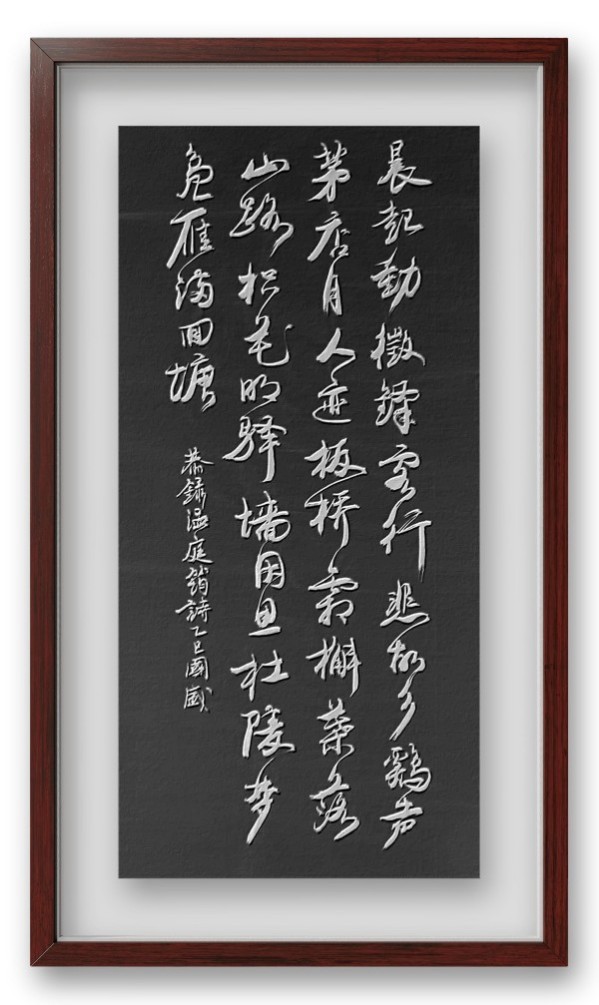 晨起動徵鐸客行悲故乡鷄声
茅店月人迹板桥霜槲葉落
山路枳花明驿墙因思杜陵梦
凫雁满回塘
恭錄温庭筠詩乙巳國威